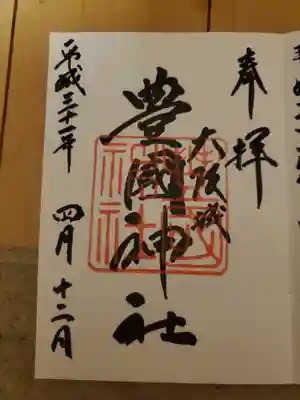 奉拝
大阪城
豊國神社
平成三十一年 四月 十二日